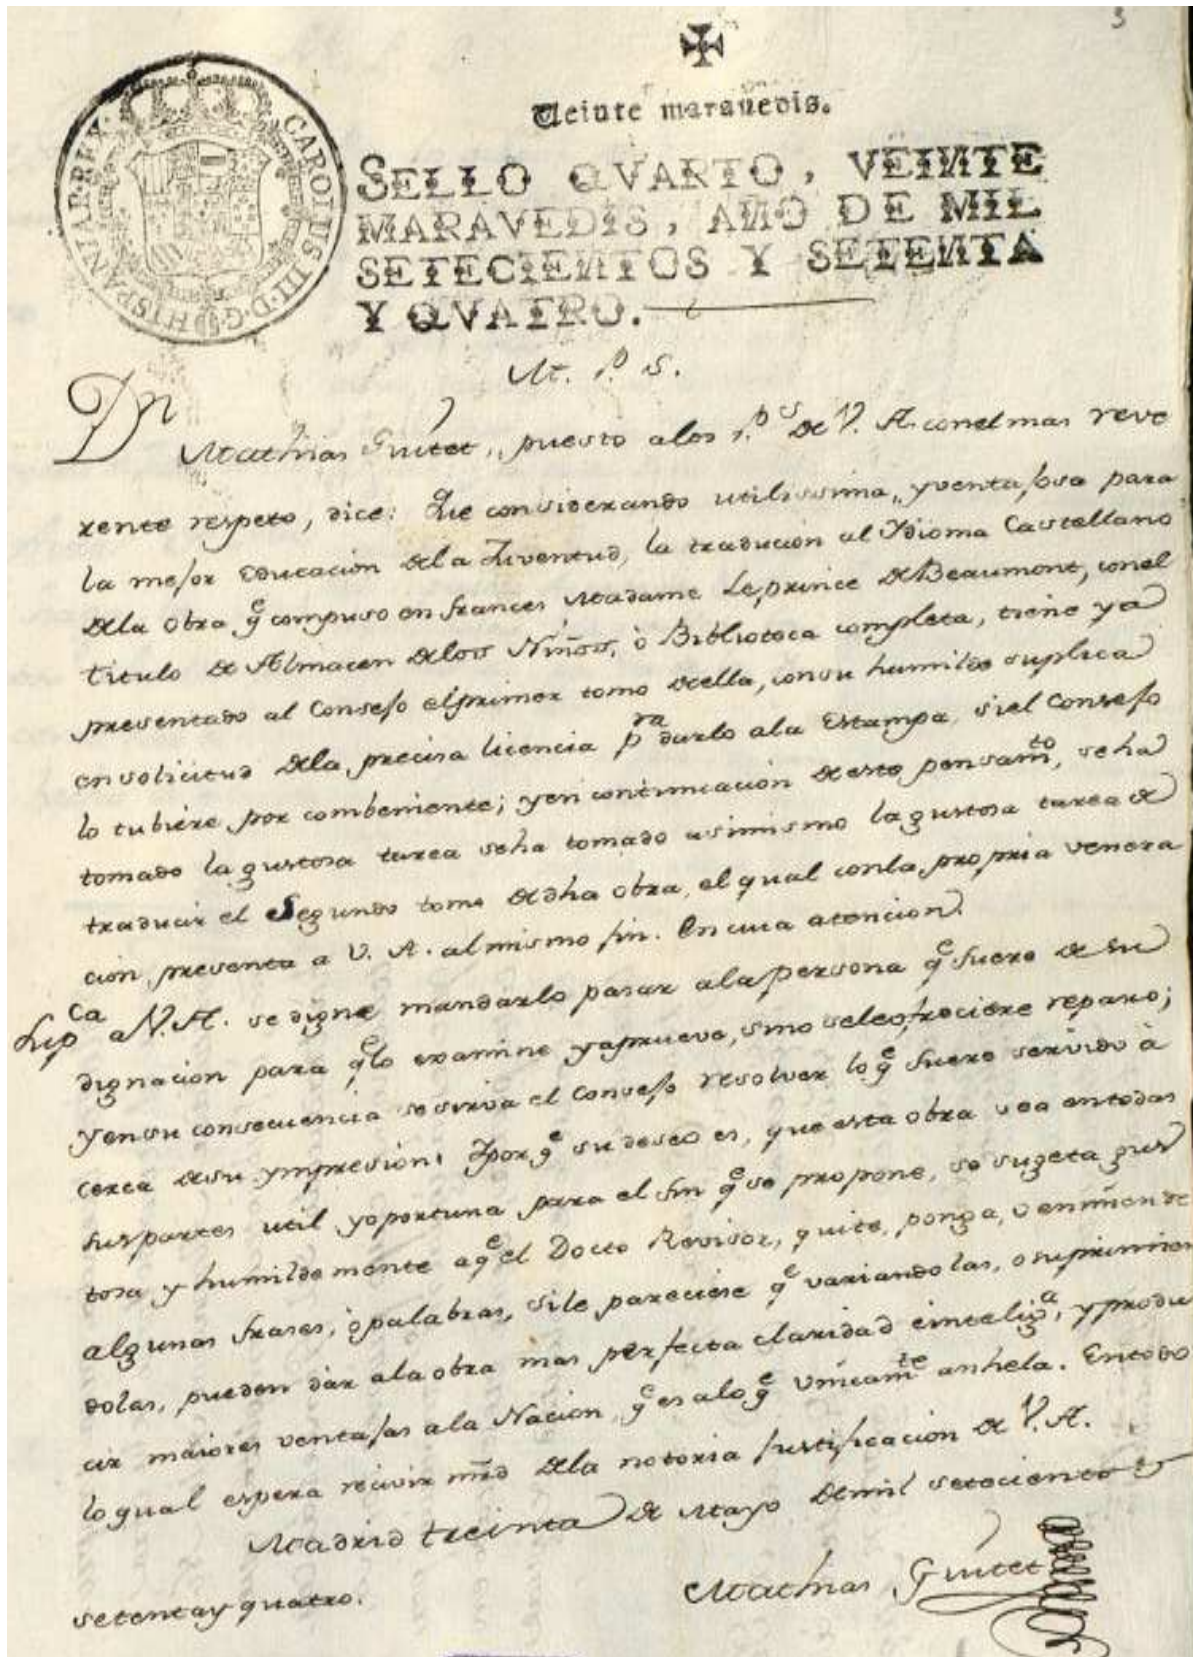 3
Veinte maravedis.
CAROLUS III·D·G·HISPANIAR·REX·
SELLO QVARTO, VEINTE
MARAVEDIS, AÑO DE MIL
SETECIENTOS Y SETENTA
Y QVATRO.
M. P. S.
Dn Mathias Guitet, puesto alos Ps de V. A. conel mas reve
rente respeto, dice: Que considerando utilissima, yventajosa para
la mejor educacion dela Juventud, la tradución al Idioma Castellano
dela obra qe compuso en frances Madame Le prince de Beaumont, conel
titulo de Almacen delos Niños, ò Biblioteca completa, tiene ya
presentado al Consejo elprimer tomo deella, consu humilde suplica
en solicitud dela precisa licencia pra darlo ala Estampa, siel Consejo
lo tubiere por combeniente; yen continuación deeste pensamto, seha
tomado la gustosa tarea seha tomado asimismo la gustosa tarea de
traducir el Segundo tomo de dha obra, el qual conla propria venera
ción, presenta a V. A. almismo fin. En cuia atencion.
Supca a V. A. se digne mandarlo pasar ala persona qe fuere de su
dignacion para qe lo examine yaprueve, sino sele ofreciere reparo;
yensu consecuencia sesirva el Consejo resolver lo qe fuere servido à
cerca desu ympresion. Ypor qe su deseo es, que esta obra sea entodas
sus partes util yoportuna para el fin qe se propone, se sugeta gus
tosa y humildemente a qe el Docto Revisor, quite, ponga, o enmiende
algunas frases, ò palabras, sile pareciese qe variandolas, o suprimien
dolas, pueden dàr ala obra mas perfecta claridad è inteliga, y produ
cir maiores ventajas ala Nacion, qe es alo qe Unicamte anhela. Entodo
lo qual espera recivir mrd dela notoria justificacion de V. A.
Madrid treinta de Mayo demil setecientos
setenta y quatro.
Mathias Guitet